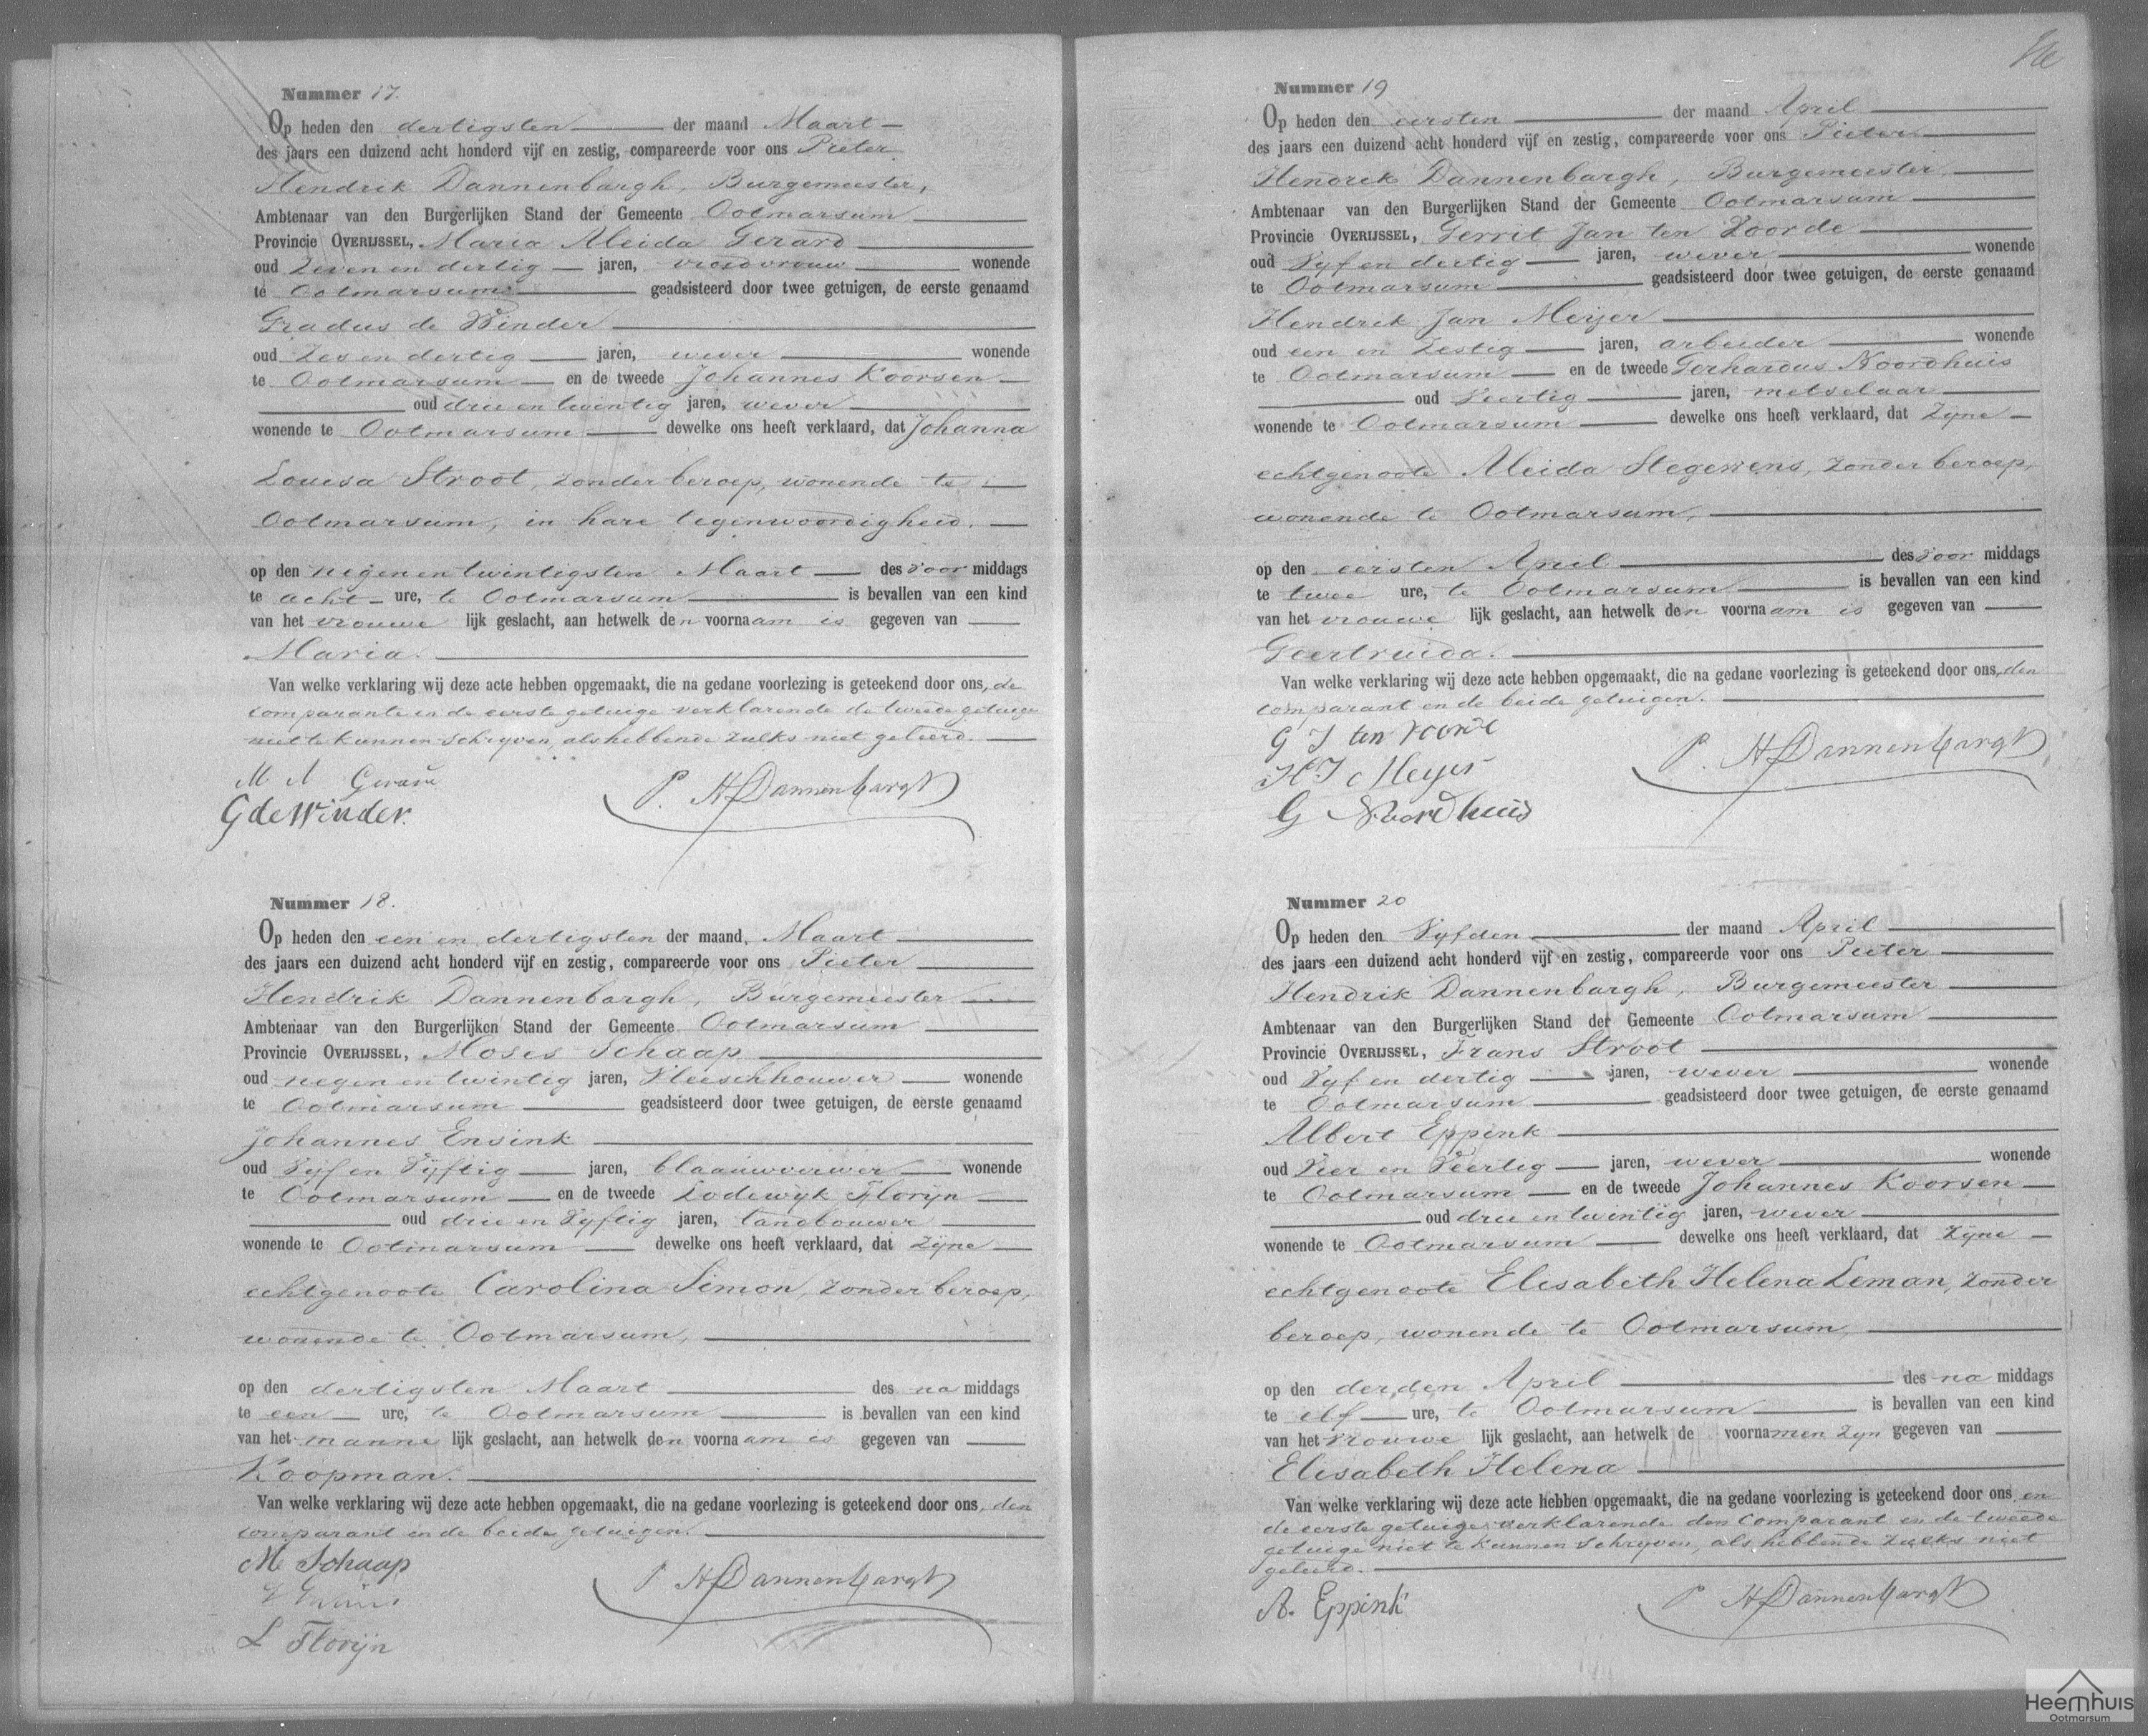 Nummer 17.
Op heden den dertigsten der maand Maart
des jaars een duizend acht honderd vijf en zestig, compareerde voor ons Pieter
Hendrik Dannenbargh, Burgemeester,
Ambtenaar van den Burgerlijken Stand der Gemeente Ootmarsum
Provincie OVERIJSSEL, Maria Aleida Gerard
oud Zeven en dertig jaren, vroedvrouw wonende
te Ootmarsum geadsisteerd door twee getuigen, de eerste genaamd
Gradus de Winder
oud Zes en dertig jaren, wever wonende
te Ootmarsum en de tweede Johannes Koorsen
oud drie en twintig jaren, wever
wonende te Ootmarsum dewelke ons heeft verklaard, dat Johanna
Louisa Stroot, zonder beroep, wonende te
Ootmarsum, in hare tegenwoordigheid.
op den negen en twintigsten Maart des voor middags
te acht ure, te Ootmarsum is bevallen van een kind
van het vrouwe lijk geslacht, aan hetwelk den voornaam is gegeven van
Maria.
Van welke verklaring wij deze acte hebben opgemaakt, die na gedane voorlezing is geteekend door ons, de
comparante en de eerste getuige verklarende de tweede getuige
niet te kunnen schryven, als hebbende zulks niet geleerd.
M A Gerard
G de Winder
P. H Dannenbargh
Nummer 18.
Op heden den een en dertigsten der maand Maart
des jaars een duizend acht honderd vijf en zestig, compareerde voor ons Pieter
Hendrik Dannenbargh, Burgemeester
Ambtenaar van den Burgerlijken Stand der Gemeente Ootmarsum
Provincie OVERIJSSEL, Moses Schaap
oud negen en twintig jaren, Vleeschhouwer wonende
te Ootmarsum geadsisteerd door twee getuigen, de eerste genaamd
Johannes Ensink
oud Vijf en Vijftig jaren, blaauwverwer wonende
te Ootmarsum en de tweede Lodewyk Floryn
oud drie en Vyftig jaren, landbouwer
wonende te Ootmarsum dewelke ons heeft verklaard, dat Zijne
echtgenoote Carolina Simon, zonder beroep,
wonende te Ootmarsum,
op den dertigsten Maart des na middags
te een ure, te Ootmarsum is bevallen van een kind
van het manne lijk geslacht, aan hetwelk den voornaam is gegeven van
Koopman.
Van welke verklaring wij deze acte hebben opgemaakt, die na gedane voorlezing is geteekend door ons, den
comparant en de beide getuigen.
M Schaap
L Florijn
P H Dannenbargh
Nummer 19
Op heden den eersten der maand April
des jaars een duizend acht honderd vijf en zestig, compareerde voor ons Pieter
Hendrik Dannenbargh, Burgemeester
Ambtenaar van den Burgerlijken Stand der Gemeente Ootmarsum
Provincie OVERIJSSEL, Gerrit Jan ten Voorde
oud Vyf en dertig jaren, wever wonende
te Ootmarsum geadsisteerd door twee getuigen, de eerste genaamd
Hendrik Jan Meijer
oud een en Zestig jaren, arbeider wonende
te Ootmarsum en de tweede Gerhardus Noordhuis
oud Veertig jaren, metselaar
wonende te Ootmarsum dewelke ons heeft verklaard, dat Zyne
echtgenoote Aleida Stegewens, zonder beroep,
wonende te Ootmarsum,
op den eersten April des voor middags
te twee ure, te Ootmarsum is bevallen van een kind
van het vrouwe lijk geslacht, aan hetwelk den voornaam is gegeven van
Geertruida.
Van welke verklaring wij deze acte hebben opgemaakt, die na gedane voorlezing is geteekend door ons, den
comparant en de beide getuigen.
G J ten voorde
H J Meyer
G Noordhuis
P. H Dannenbargh
Nummer 20
Op heden den Vyfden der maand April
des jaars een duizend acht honderd vijf en zestig, compareerde voor ons Pieter
Hendrik Dannenbargh, Burgemeester
Ambtenaar van den Burgerlijken Stand der Gemeente Ootmarsum
Provincie OVERIJSSEL, Frans Stroot
oud Vyf en dertig jaren, wever wonende
te Ootmarsum geadsisteerd door twee getuigen, de eerste genaamd
Albert Eppink
oud Vier en Veertig jaren, wever wonende
te Ootmarsum en de tweede Johannes Koorsen
oud drie en twintig jaren, wever
wonende te Ootmarsum dewelke ons heeft verklaard, dat Zijne
echtgenoote Elisabeth Helena Leman, zonder
beroep, wonende te Ootmarsum,
op den derden April des na middags
te elf ure, te Ootmarsum is bevallen van een kind
van het Vrouwe lijk geslacht, aan hetwelk de voornamen zyn gegeven van
Elisabeth Helena
Van welke verklaring wij deze acte hebben opgemaakt, die na gedane voorlezing is geteekend door ons en
de eerste getuige verklarende den Comparant en de tweede
getuige niet te kunnen schryven, als hebbende zulks niet
geleerd.
A. Eppink
P H Dannenbargh
Heemhuis
Ootmarsum